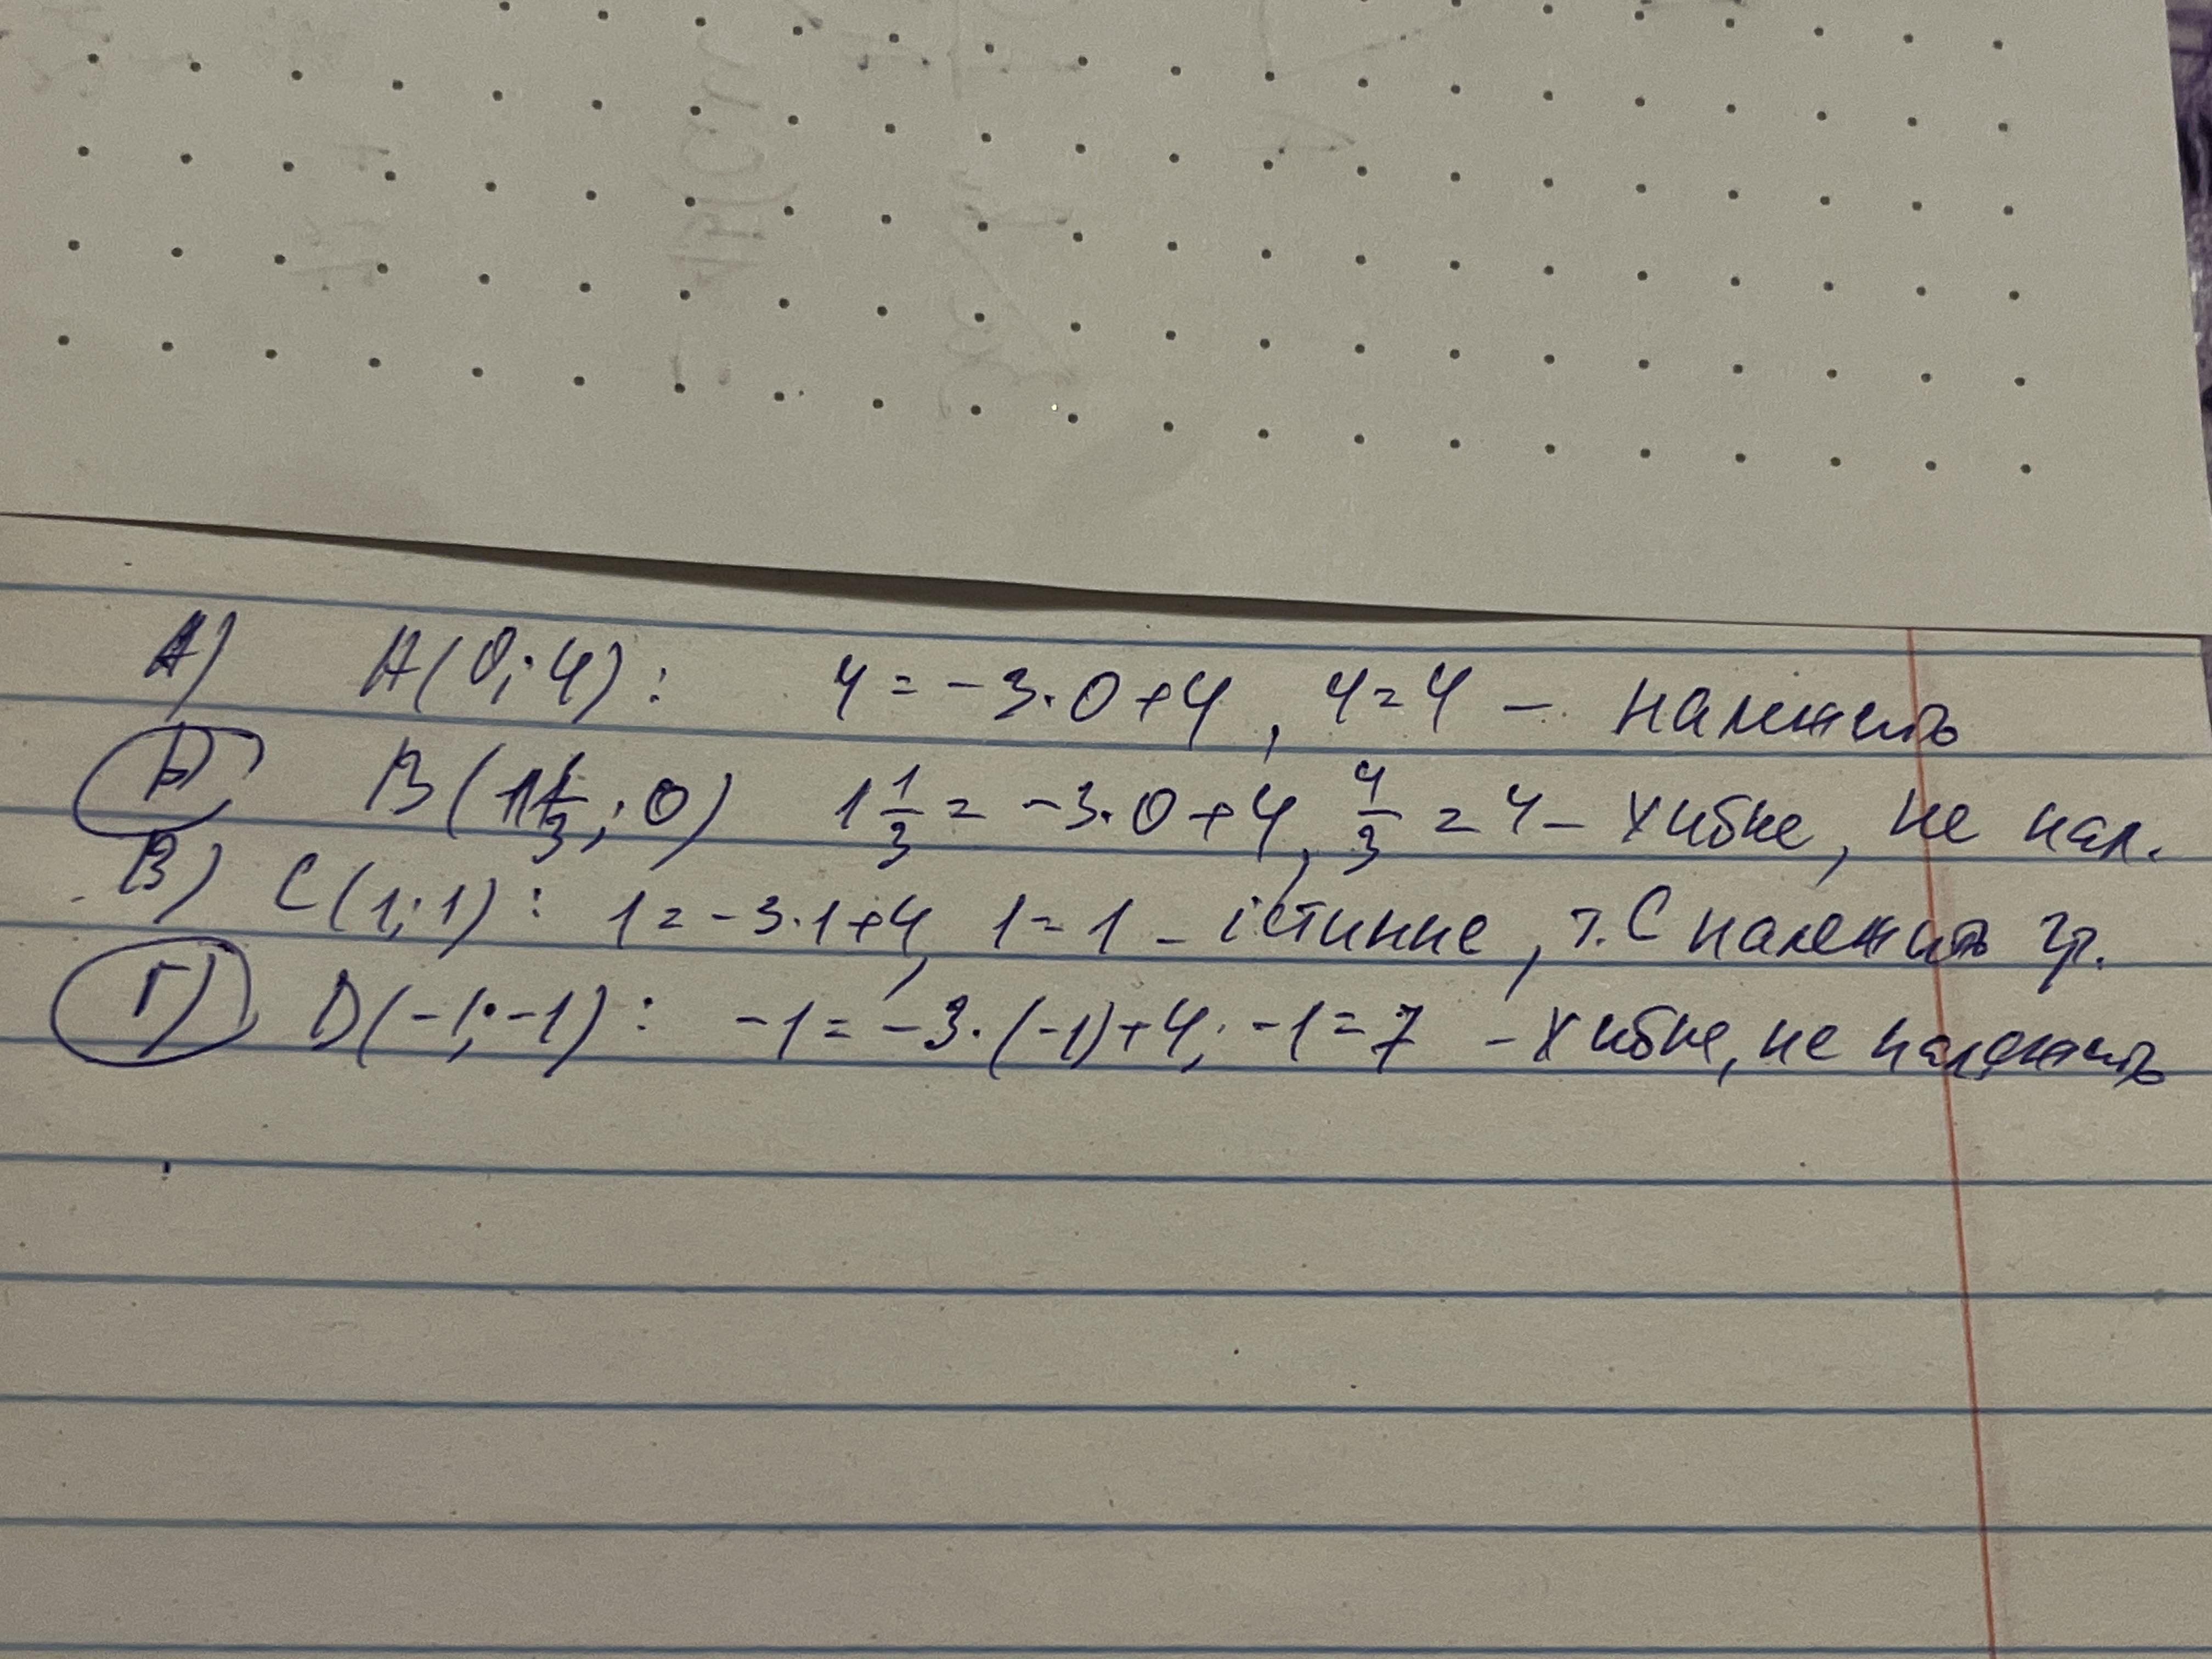 А) A(0;4): 4=-3·0+4, 4=4 – належить
Б) B(1 1/3; 0) 1 1/3 = -3·0+4, 4/3 = 4 – хибне, не нал.
В) C(1;1): 1=-3·1+4, 1=1 – істинне, т. C належить гр.
Г) D(-1;-1): -1=-3·(-1)+4; -1=7 – хибне, не належить